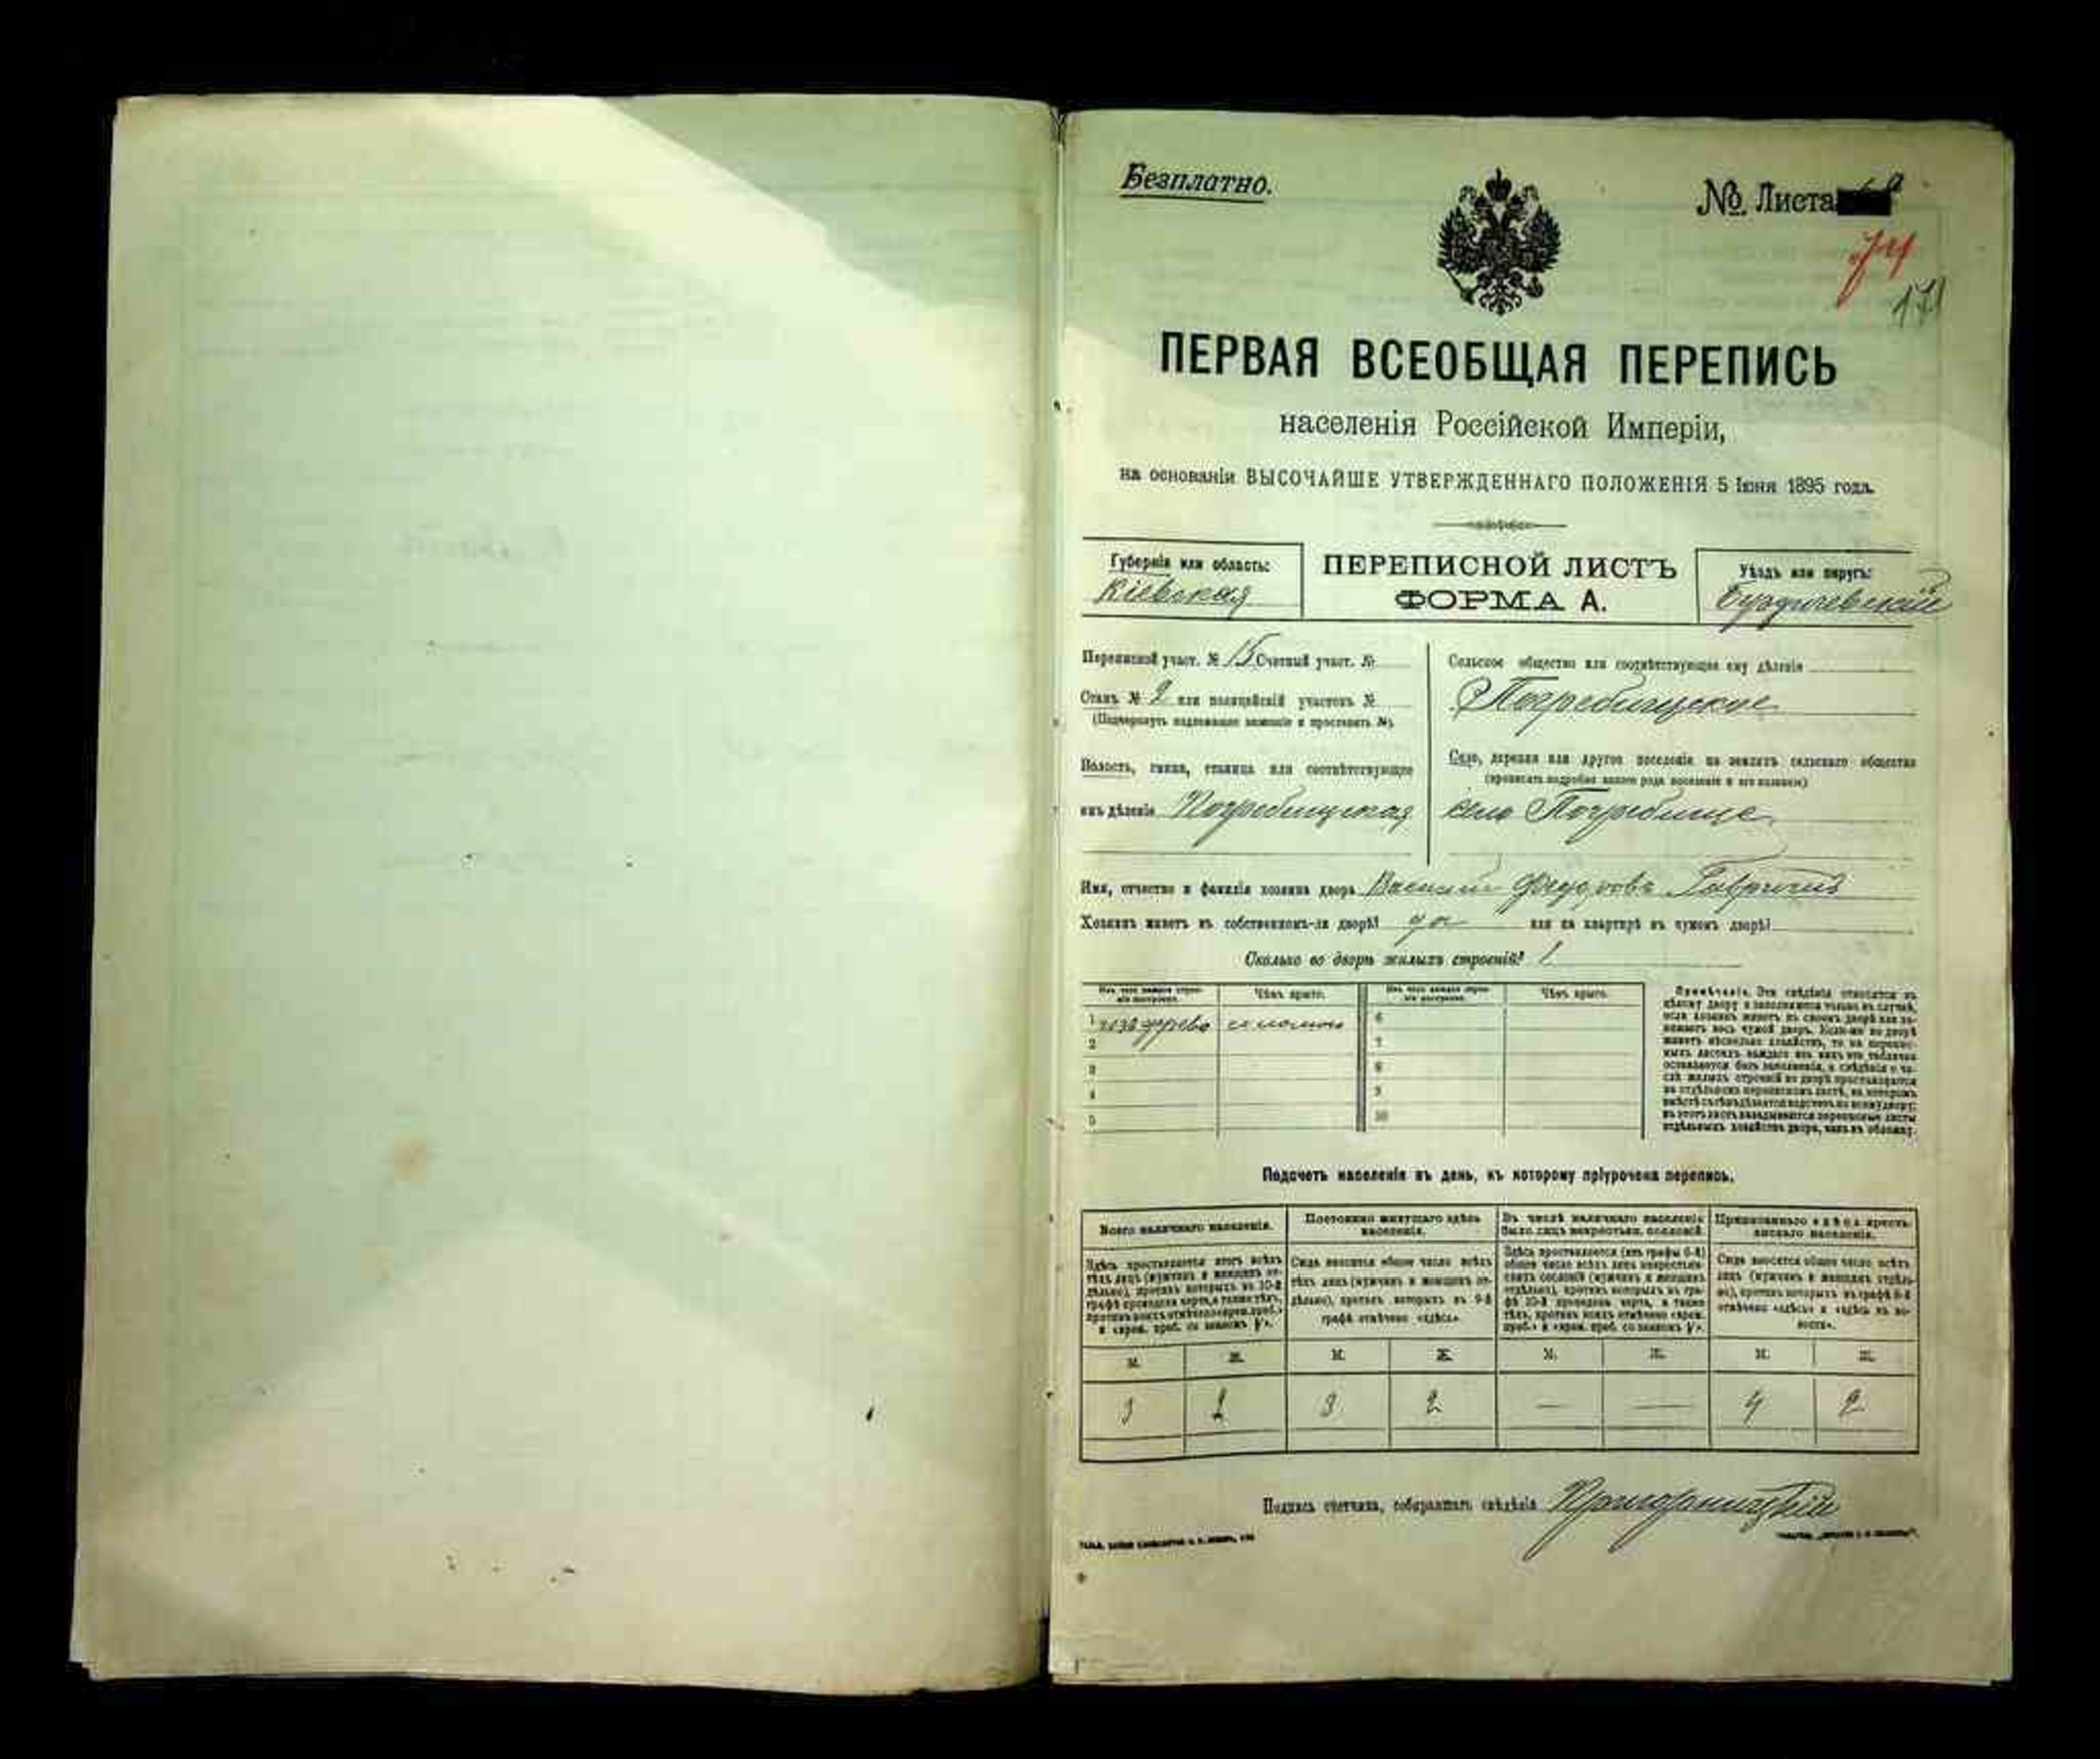 Безплатно.
№ Листа
74
171
ПЕРВАЯ ВСЕОБЩАЯ ПЕРЕПИСЬ
населенія Россійской Имперіи,
на основаніи ВЫСОЧАЙШЕ УТВЕРЖДЕННАГО ПОЛОЖЕНІЯ 5 Іюня 1895 года.
Губернія или область:
Кіевская
ПЕРЕПИСНОЙ ЛИСТЪ
ФОРМА А.
Уѣздъ или округъ:
Бердичевскій
Переписной участ. № 15 Счетный участ. №
Станъ № 2 или полицейскій участокъ №
(Подчеркнуть надлежащее названіе и проставить №).
Волость, гмина, станица или соотвѣтствующее
имъ дѣленіе Погребищская
Сельское общество или соотвѣтствующее ему дѣленіе
Погребищское
Село, деревня или другое поселеніе на земляхъ сельскаго общества
(прописать подробно какого рода поселеніе и его названіе)
село Погребище
Имя, отчество и фамилія хозяина двора Василій Федоровъ
Хозяинъ живетъ въ собственномъ-ли дворѣ? да или на квартирѣ въ чужомъ дворѣ?
Сколько во дворѣ жилыхъ строеній? 1
Изъ чего каждое строеніе построено. Чѣмъ крыто. Изъ чего каждое строеніе построено. Чѣмъ крыто.
1 дерево соломою 6
2 7
3 8
4 9
5 10
Примѣчаніе. Эти свѣдѣнія относятся къ
цѣлому двору и заполняются только въ случаѣ,
если хозяинъ живетъ въ своемъ дворѣ или за-
нимаетъ весь чужой дворъ. Если-же во дворѣ
живетъ нѣсколько хозяйствъ, то на перепис-
ныхъ листахъ каждаго изъ нихъ эта табличка
оставляется безъ заполненія, а свѣдѣнія о чи-
слѣ жилыхъ строеній во дворѣ проставляются
на отдѣльномъ переписномъ листѣ, на которомъ
Подсчетъ населенія въ день, къ которому пріурочена перепись.
Всего наличнаго населенія.
Здѣсь проставляется итогъ всѣхъ
тѣхъ лицъ (мужчинъ и женщинъ от-
дѣльно), противъ которыхъ въ 10-й
графѣ проведена черта, а также тѣхъ,
противъ коихъ отмѣчено «врем. преб.»
Постоянно живущаго здѣсь
населенія.
Сюда вносится общее число всѣхъ
тѣхъ лицъ (мужчинъ и женщинъ от-
дѣльно), противъ которыхъ въ 9-й
графѣ отмѣчено «здѣсь».
Въ числѣ наличнаго населенія
было лицъ некрестьян. сословій.
Здѣсь проставляется (изъ графы 6-й)
общее число всѣхъ лицъ некрестьян-
скихъ сословій (мужчинъ и женщинъ
отдѣльно), противъ которыхъ въ гра-
фѣ 10-й проведена черта, а также
тѣхъ, противъ коихъ отмѣчено «врем.
Приписаннаго здѣсь кресть-
янскаго населенія.
Сюда вносится общее число всѣхъ
лицъ (мужчинъ и женщинъ отдѣль-
но), противъ которыхъ въ графѣ 8-й
отмѣчено «здѣсь» и «здѣсь въ во-
лости».
М. Ж. М. Ж. М. Ж. М. Ж.
3 2 3 2 — — 4 2
Подпись счетчика, собиравшаго свѣдѣнія